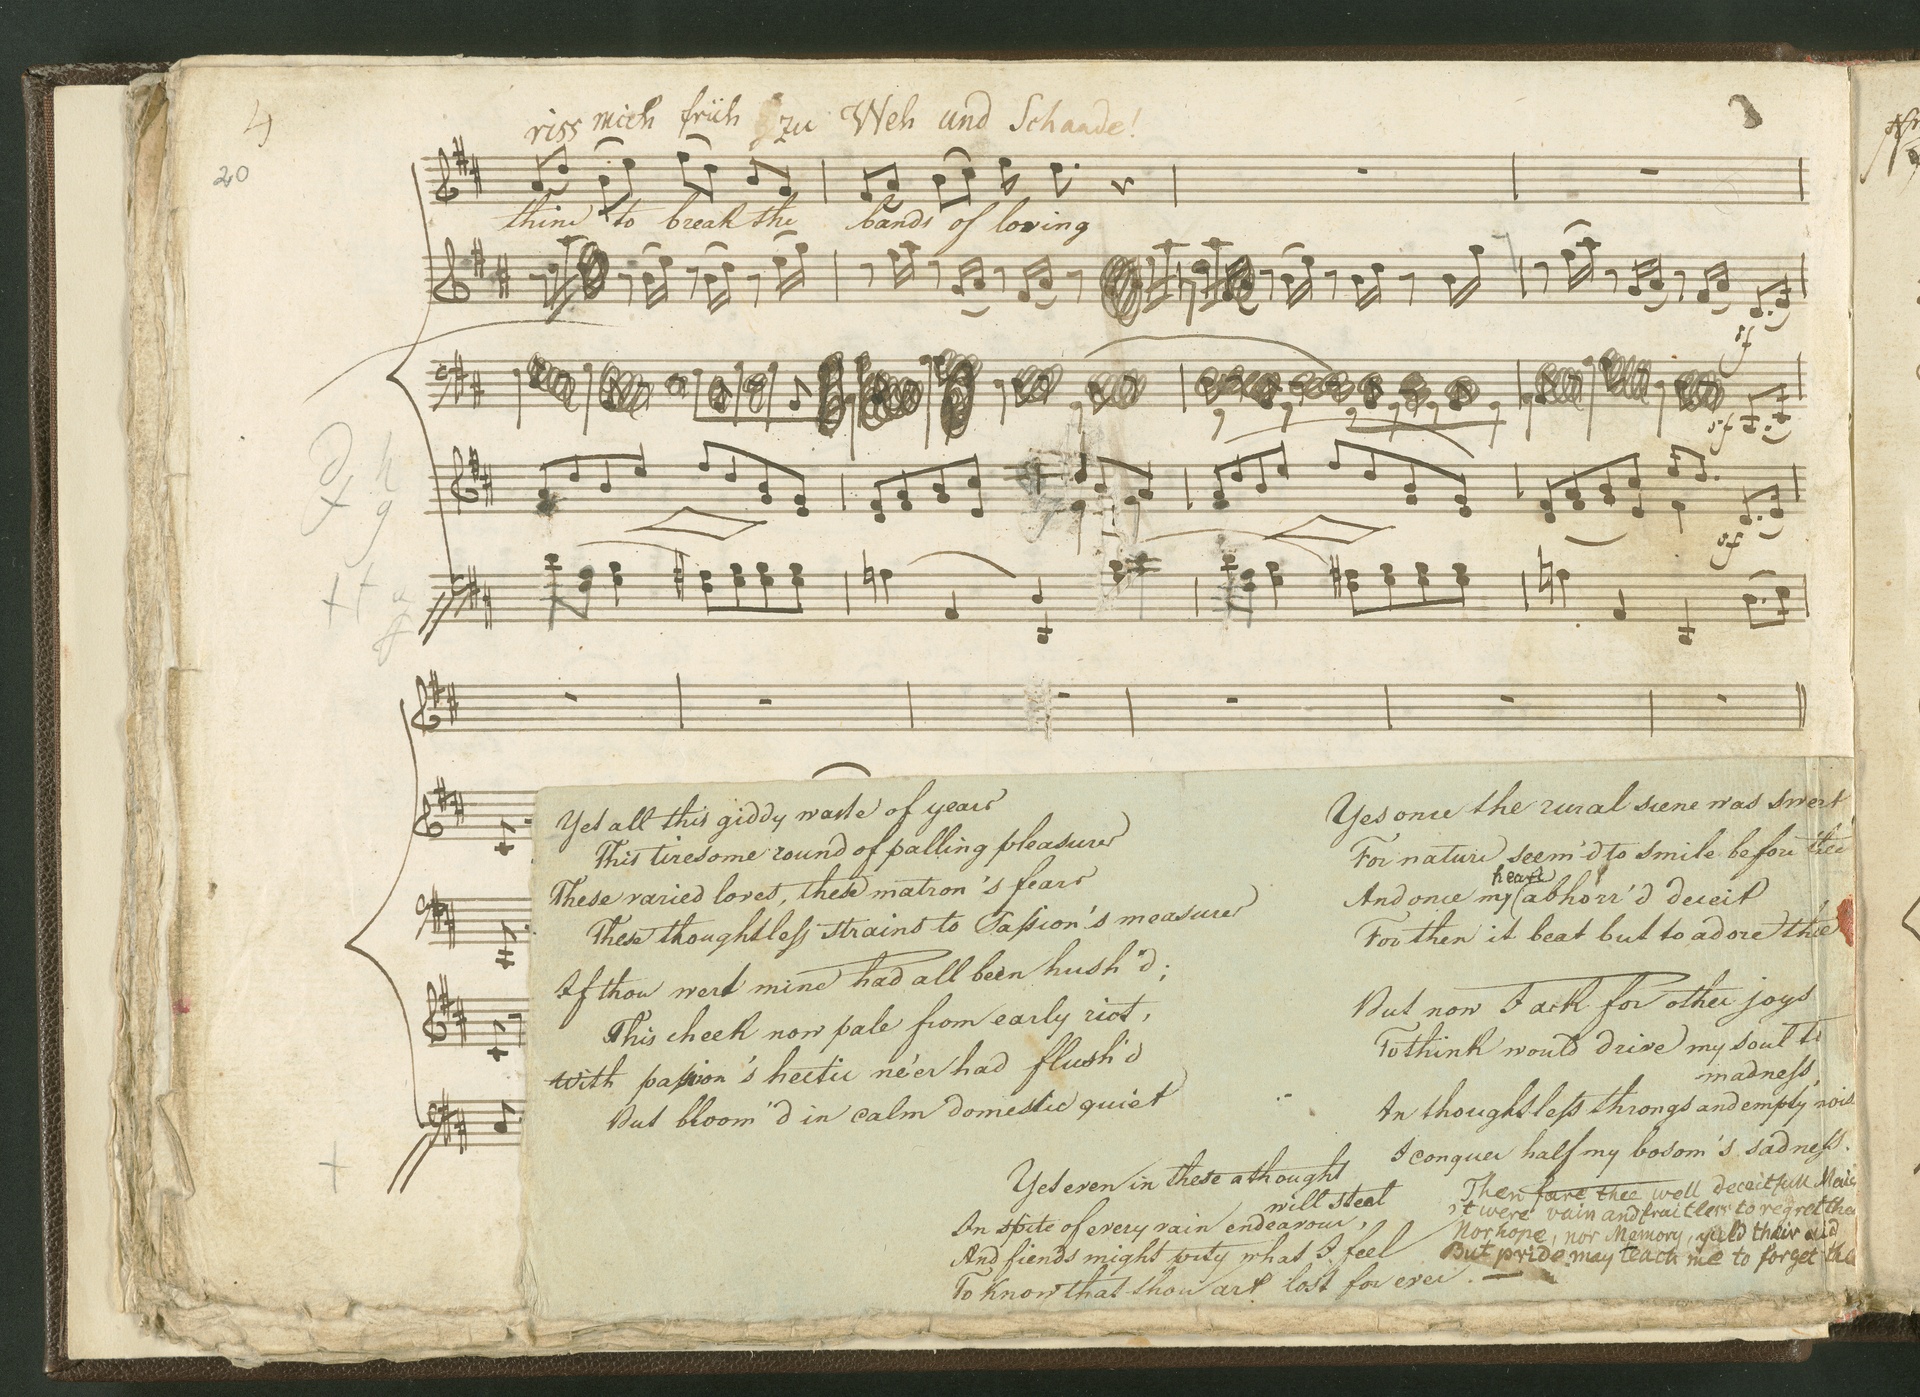 4
20
riss mich früh zu Weh und Schande!
thine to break the bands of loving
sf
sf
sf
h
g
Yet all this giddy waste of years
This tiresome round of palling pleasures
These varied loves, these matron's fears
These thoughtless strains to Passion's measures
If thou wert mine had all been hush'd;
This cheek now pale from early riot,
With passion's hectic ne'er had flush'd
But bloom'd in calm domestic quiet
Yes once the rural scene was sweet
For nature seem'd to smile before thee
heart
And once my abhorr'd deceit
For then it beat but to adore thee
But now I ask for other joys
To think would drive my soul to
madness
In thoughtless throngs and empty nois
I conquer half my bosom's sadness.
Yet even in these a thought
will steal
In spite of every vain endeavour,
And fiends might pity what I feel
To know that thou art lost for ever.
Then fare thee well deceitfull Maid
it were vain and fruitless to regret thee
Nor hope, nor Memory, yield their aid
But pride may teach me to forget thee